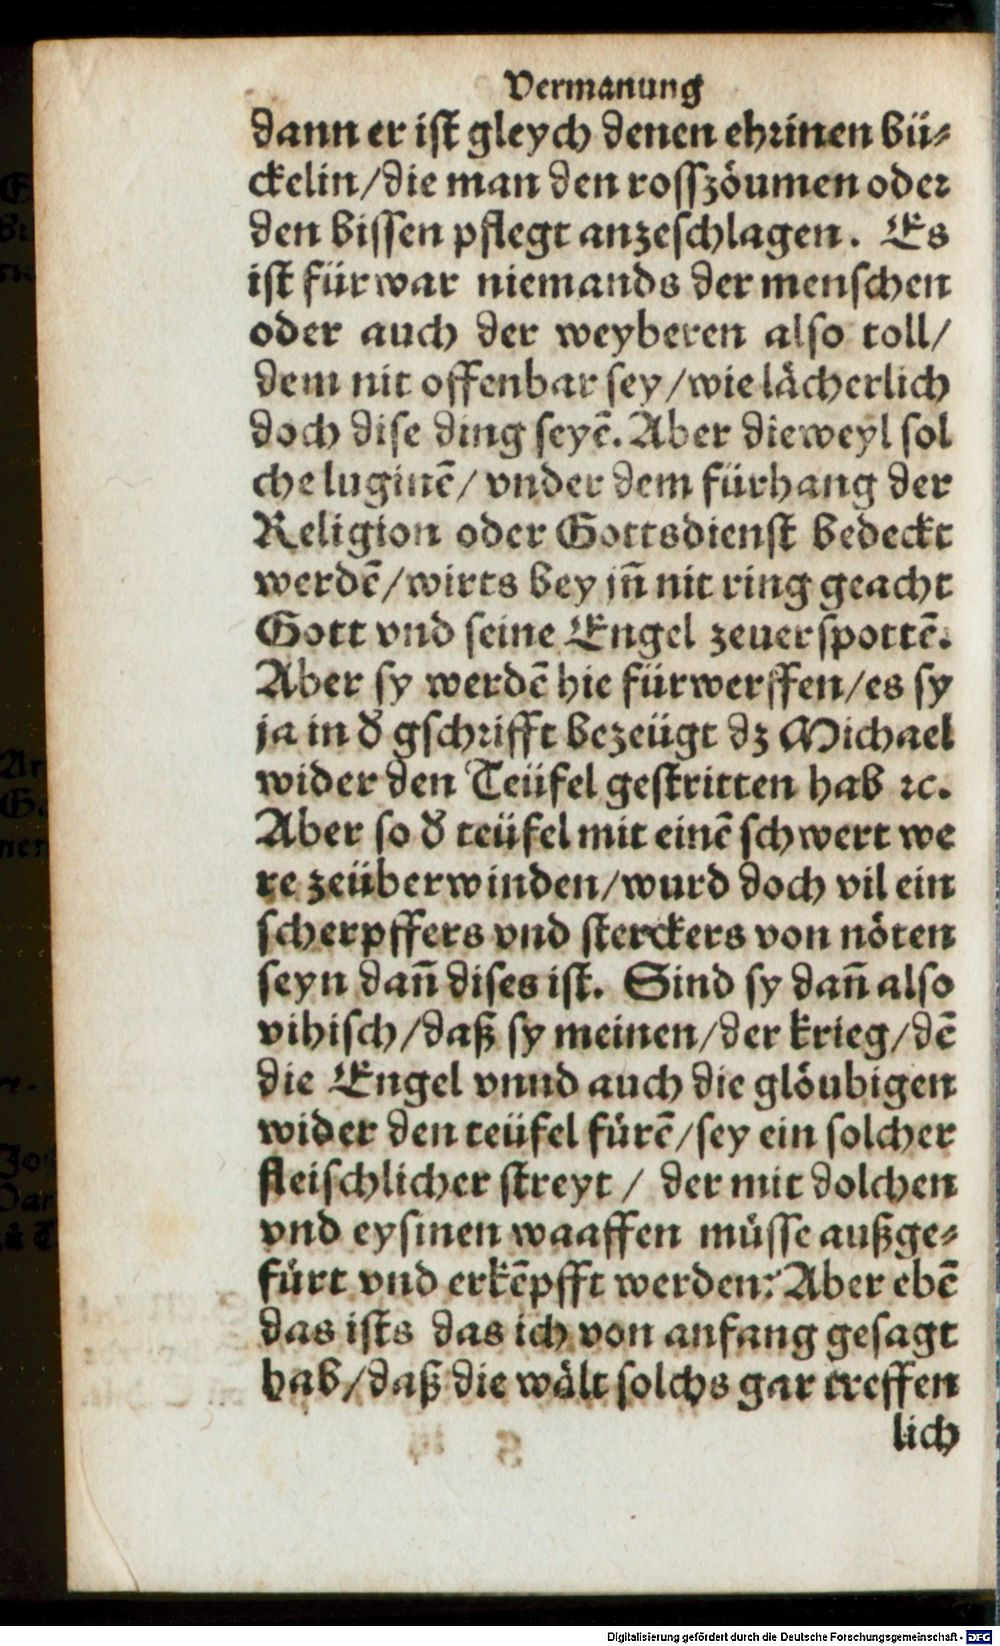 Vermanung
dann er ist gleych denen ehrinen bü⸗
ckelin/die man den rosszöumen oder
den bissen pflegt anzeschlagen. Es
ist fürwar niemands der menschen
oder auch der weyberen also toll/
dem nit offenbar sey/wie lächerlich
doch dise ding seyē. Aber dieweyl sol
che luginē/ vnder dem fürhang der
Religion oder Gottsdienst bedeckt
werdē/wirts bey jn̄ nit ring geacht
Gott vnd seine Engel zeuerspottē.
Aber sy werdē hie fürwerffen/es sy
ja in d̕ gschrifft bezeügt dz Michael
wider den Teüfel gestritten hab ꝛc.
Aber so d̕ teüfel mit einē schwert we
re zeüberwinden/wurd doch vil ein
scherpffers vnd sterckers von nöten
seyn dan̄ dises ist. Sind sy dan̄ also
vihisch/daß sy meinen/der krieg/dē
die Engel vnnd auch die glöubigen
wider den teüfel fürē/sey ein solcher
fleischlicher streyt / der mit dolchen
vnd eysinen waaffen müsse außge⸗
fürt vnd erkēpfft werden: Aber ebē
das ists das ich von anfang gesagt
hab/daß die wält solchs gar treffen
lich
Digitalisierung gefördert durch die Deutsche Forschungsgemeinschaft - DFG